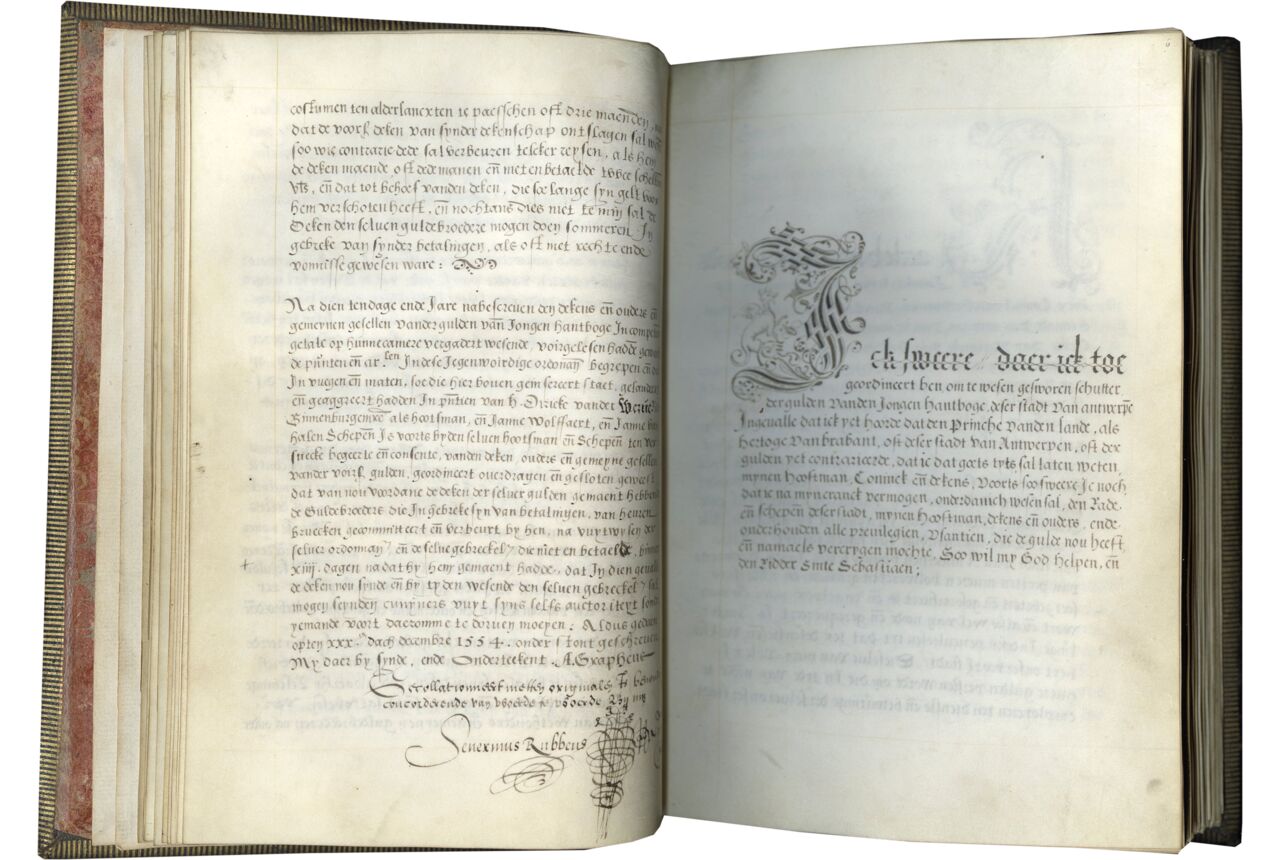 costumen ten alderlancxten te paesschen oft drie maenden
dat de voors. deken van synder dekenschap ontslagen sal
soo wie contrarie dede sal verbeuren telcker reysen, als hem
de deken maende, oft dede manen en̄ met en betaelde twee
vls, en̄ dat tot behoef vanden deken, die soe lange syn gelt voor
hem verschoten heeft, en̄ nochtans dies niet te min sal de
Deken den seluen guldebroedere mogen doen sommeren. In
gebreke van synder betalingen, als oft met rechte ende
vonnisse gewesen ware:
Na dien tendage ende Jare nabescreuen den dekens en̄ ouders en̄
gemeynen gesellen vander gulden van̄ Jongen Hantboge In
getale op hunne camere vergadert wesende, voirgelesen hadde
de pūnten en̄ ar.len In dese Jegenwoirdige ordonan̄ begrepen
In vuegen en̄ maten, soe die hier bouen geinsereert staet,
en̄ geaggreert hadden In pn̄tien van h. Diricke vander Werue
als hootsman, en̄ Janne Wolffaert, en̄ Janne
halen Schepen̄ Is voorts by den seluen hootsman en̄ Schepen̄ ten
suecke begeerte en̄ consente, vanden deken, ouders en̄ gemeyne gesellen
vander voirs. gulden, geordineert ouerdragen en̄ gesloten geweest
dat van nou voordane de deken der seluer gulden gemaent hebbende
de Guldebroeders die In gebreke syn van betalinghen, van heuren
bruecken gecommitteert en̄ verbeurt by hen, na vuytwysen der
seluer ordonan̄, en̄ de selue gebreckel. die niet en betaelde, binnen
xiiij. dagen na dat hy hem gemaent hadde, dat In dien
de deken nou synde en̄ by tyden wesende den seluen gebreckel. sal
mogen seynden vuyt syns selfs auctoriteyt sonder
yemande voort daeromme te doruen moeyen: Aldus gedaen
opten xxx.n dach decembr. 1554. onder stont gescreuen
My daer by synde, ende Onderteekent. A. Grapheus
Gecollationeert metten originale is beuonden
concorderende van woorde te woorde By my
Seuerinus Rubbens
Ick sweere daer ick toe
geordineert ben om te wesen gesworen schutter,
der gulden vanden Jongen Hantboge, deser stadt van antwerpē
Ingeualle dat ick yet hoorde dat den Prinche vanden lande, als
Hertoge van brabant, oft deser stadt van Antwerpen, oft der
gulden yet contrarieerde, dat ic dat goets tyts sal laten weten,
mynen Hooftman, Coninck en̄ dekens, Voorts soo sweere Ic noch
dat ic na mynen cranck vermogen, onderdanich wesen sal, den Rade
en̄ schepen̄ deser stadt, mynen Hooftman, dekens en̄ ouders, ende
onderhouden alle preuilegien, Vsantien, die de gulde nou heeft,
en̄ namaels vercrygen mochte, Soo wil my God helpen, en̄
den Ridder Sinte Sebastiaen: